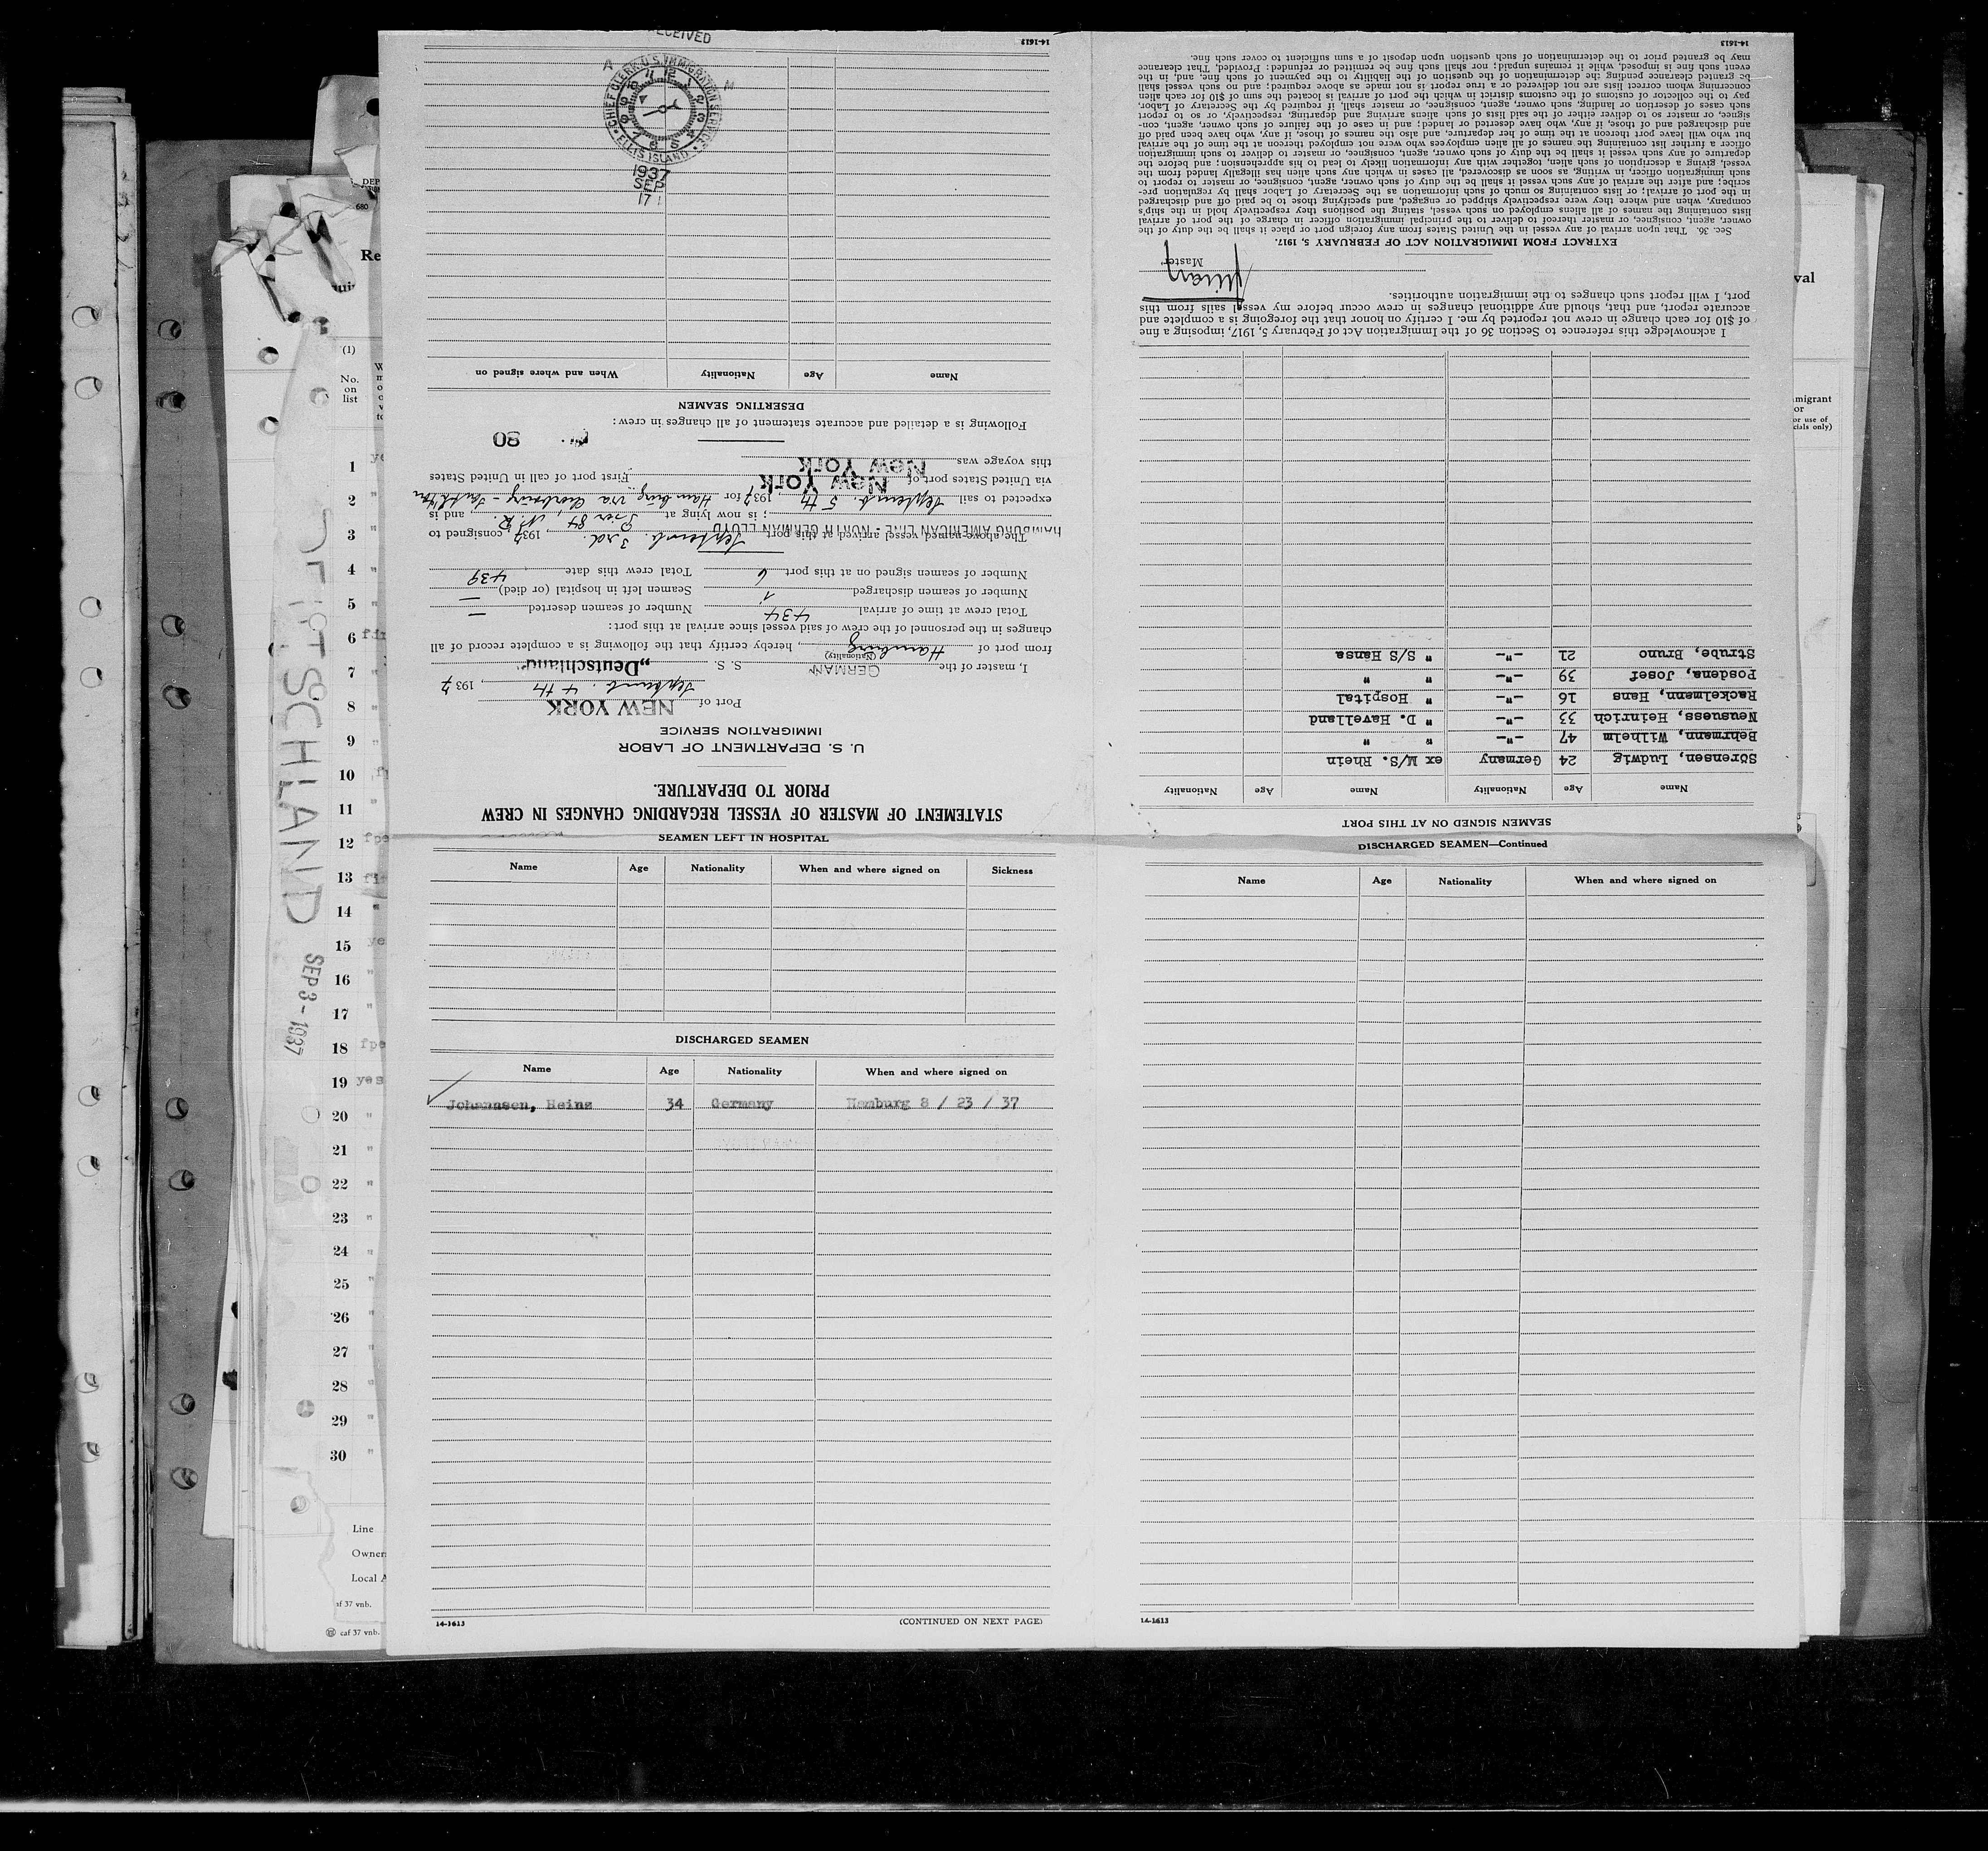 STATEMENT OF MASTER OF VESSEL REGARDING CHANGES IN CREW
PRIOR TO DEPARTURE.
U. S. DEPARTMENT OF LABOR
IMMIGRATION SERVICE
Port of NEW YORK
Septemb. 4th, 1937
I, master of the GERMAN S. S. „Deutschland"
(Nationality)
from port of Hamburg, hereby certify that the following is a complete record of all
changes in the personnel of the crew of said vessel since arrival at this port:
Total crew at time of arrival 434 Number of seamen deserted —
Number of seamen discharged 1 Seamen left in hospital (or died) —
Number of seamen signed on at this port 6 Total crew this date 439
The above-named vessel arrived at this port Septemb. 3rd. 1937, consigned to
HAMBURG AMERICAN LINE - NORTH GERMAN LLOYD
; is now lying at Pier 84 N. R., and is
expected to sail Septemb. 5th, 1937 for Hamburg via Cherbourg -
via United States port of New York First port of call in United States
this voyage was New York
80
Following is a detailed and accurate statement of all changes in crew:
DESERTING SEAMEN
Name Age Nationality When and where signed on
RECEIVED
CHIEF CLERK U.S. IMMIGRATION SERVICE
ELLIS ISLAND
1937
SEP
17
14-1613
SEAMEN LEFT IN HOSPITAL
Name Age Nationality When and where signed on Sickness
DISCHARGED SEAMEN
Name Age Nationality When and where signed on
Johannsen, Heinz 34 Germany Hamburg 8 / 23 / 37
14-1613 (CONTINUED ON NEXT PAGE)
DISCHARGED SEAMEN—Continued
Name Age Nationality When and where signed on
14-1613
SEAMEN SIGNED ON AT THIS PORT
Name Age Nationality Name Age Nationality
Sörensen, Ludwig 24 Germany ex M/S. Rhein
Behrmann, Wilhelm 47 -"- " "
Neusuess, Heinrich 33 -"- " D. Havelland
Rackelmann, Hans 16 -"- " Hospital
Posdena, Josef 39 -"- " "
Strube, Bruno 21 -"- " S/S Hansa
I acknowledge this reference to Section 36 of the Immigration Act of February 5, 1917, imposing a fine
of $10 for each change in crew not reported by me. I certify on honor that the foregoing is a complete and
accurate report, and that, should any additional changes in crew occur before my vessel sails from this
port, I will report such changes to the immigration authorities.
Master
EXTRACT FROM IMMIGRATION ACT OF FEBRUARY 5, 1917.
Sec. 36. That upon arrival of any vessel in the United States from any foreign port or place it shall be the duty of the
owner, agent, consignee, or master thereof to deliver to the principal immigration officer in charge of the port of arrival
lists containing the names of all aliens employed on such vessel, stating the positions they respectively hold in the ship's
company, when and where they were respectively shipped or engaged, and specifying those to be paid off and discharged
in the port of arrival; or lists containing so much of such information as the Secretary of Labor shall by regulation pre-
scribe; and after the arrival of any such vessel it shall be the duty of such owner, agent, consignee, or master to report to
such immigration officer, in writing, as soon as discovered, all cases in which any such alien has illegally landed from the
vessel, giving a description of such alien, together with any information likely to lead to his apprehension; and before the
departure of any such vessel it shall be the duty of such owner, agent, consignee, or master to deliver to such immigration
officer a further list containing the names of all alien employees who were not employed thereon at the time of the arrival
but who will leave port thereon at the time of her departure, and also the names of those, if any, who have been paid off
and discharged and of those, if any, who have deserted or landed; and in case of the failure of such owner, agent, con-
signee, or master so to deliver either of the said lists of such aliens arriving and departing, respectively, or so to report
such cases of desertion or landing, such owner, agent, consignee, or master shall, if required by the Secretary of Labor,
pay to the collector of customs of the customs district in which the port of arrival is located the sum of $10 for each alien
concerning whom correct lists are not delivered or a true report is not made as above required; and no such vessel shall
be granted clearance pending the determination of the question of the liability to the payment of such fine, and, in the
event such fine is imposed, while it remains unpaid; nor shall such fine be remitted or refunded: Provided, That clearance
may be granted prior to the determination of such question upon deposit of a sum sufficient to cover such fine.
14-1613
DEUTSCHLAND
SEP 3 - 1937
DEP
680
Re
(1)
No.
on
list
1
2
3
4
5
6
7
8
9
10
11
12
13
14
15
16
17
18 fpe
19 yes
20
21
22
23
24
25
26
27
28
29
30
Line
Owner
Local A
caf 37 vnb.
val
migrant
or
or use of
cials only)